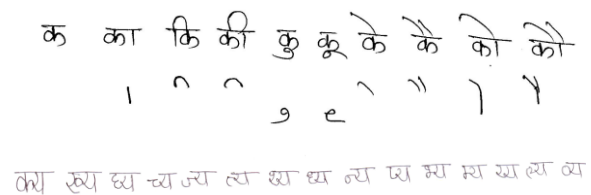 क का कि की कु कू के कै को कौ
ा ि ी ु ू े ै ो ौ
क्य ख्य घ्य च्य ज्य त्य थ्य ध्य न्य प्य भ्य म्य ल्य व्य